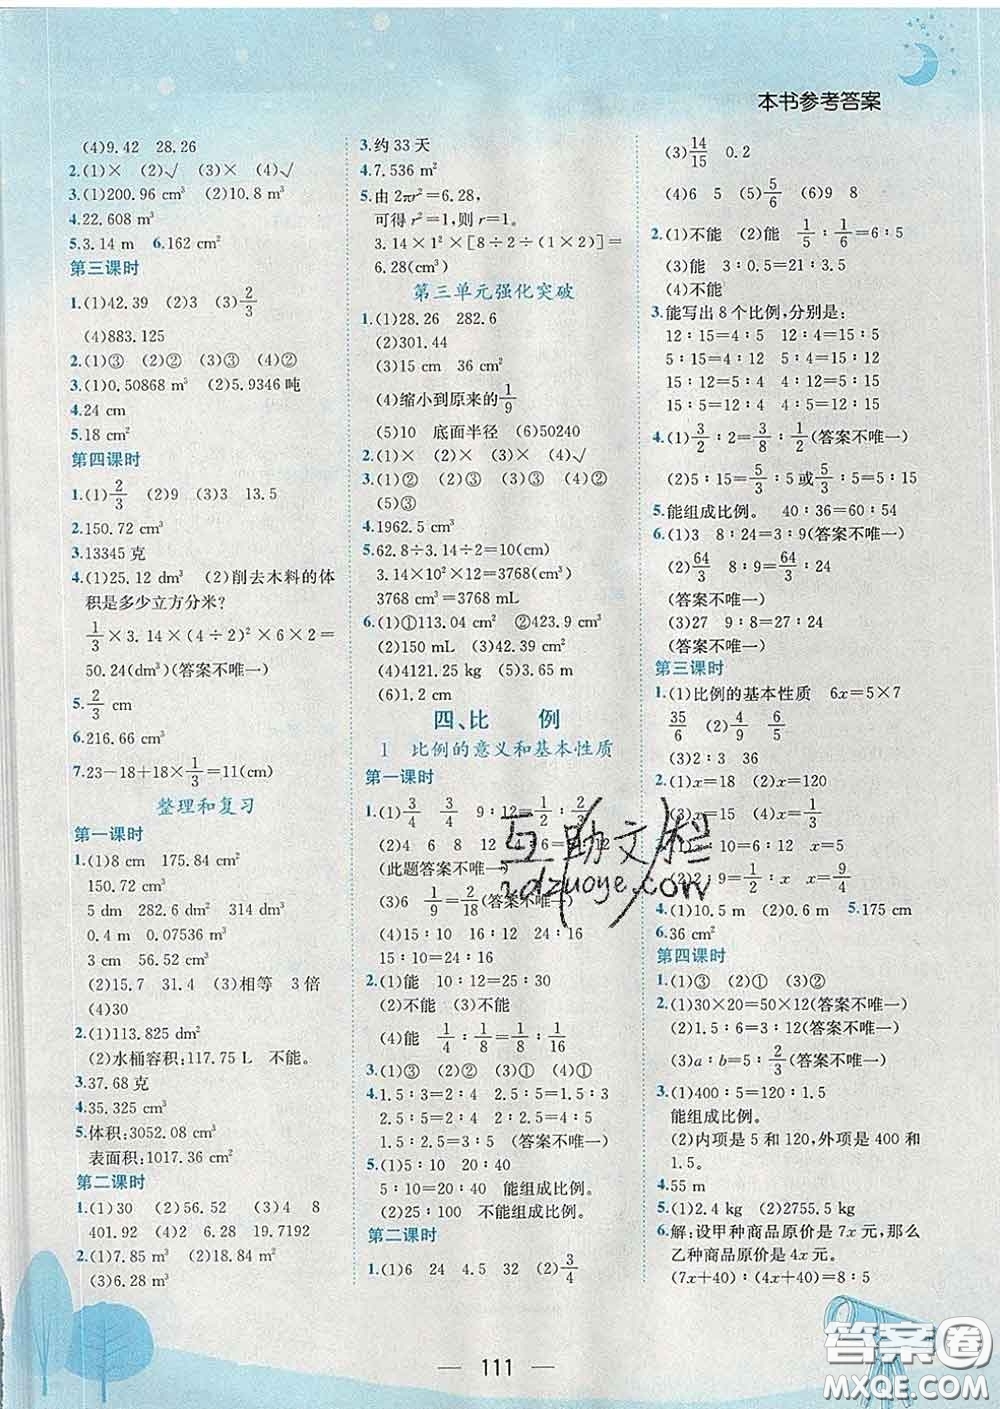 本书参考答案
(4)9.42 28.26
2.(1)× (2)√ (3)× (4)√
3.(1)200.96 cm³ (2)10.8 m³
4.22.608 m³
5.3.14 m 6.162 cm²
第三课时
1.(1)42.39 (2)3 (3)2/3
(4)883.125
2.(1)③ (2)② (3)③ (4)②
3.(1)0.50868 m³ (2)5.9346吨
4.24 cm
5.18 cm²
第四课时
1.(1)2/3 (2)9 (3)3 13.5
2.150.72 cm³
3.13345 克
4.(1)25.12 dm³ (2)削去木料的体
积是多少立方分米?
1/3×3.14×(4÷2)²×6×2=
50.24(dm³)(答案不唯一)
5.2/3 cm
6.216.66 cm³
7.23-18+18×1/3=11(cm)
整理和复习
第一课时
1.(1)8 cm 175.84 cm²
150.72 cm³
5 dm 282.6 dm² 314 dm³
0.4 m 0.07536 m³
3 cm 56.52 cm³
(2)15.7 31.4 (3)相等 3倍
(4)30
2.(1)113.825 dm²
(2)水桶容积:117.75 L 不能。
3.37.68克
4.35.325 cm³
5.体积:3052.08 cm³
表面积:1017.36 cm²
第二课时
1.(1)30 (2)56.52 (3)4 8
401.92 (4)2 6.28 19.7192
2.(1)7.85 m² (2)18.84 m²
(3)6.28 m³
3.约33天
4.7.536 m²
5.由2πr²=6.28,
可得r²=1,则r=1。
3.14×1²×[8÷2÷(1×2)]=
6.28(cm³)
第三单元强化突破
1.(1)28.26 282.6
(2)301.44
(3)15 cm 36 cm²
(4)缩小到原来的1/9
(5)10 底面半径 (6)50240
2.(1)× (2)× (3)× (4)√
3.(1)② (2)③ (3)③ (4)②
(5)③
4.1962.5 cm³
5.62.8÷3.14÷2=10(cm)
3.14×10²×12=3768(cm³)
3768 cm³=3768 mL
6.(1)①113.04 cm² ②423.9 cm³
(2)150 mL (3)42.39 cm³
(4)4121.25 kg (5)3.6 cm
(6)1.2 cm
四、比 例
1 比例的意义和基本性质
第一课时
1.(1)3/4 3/4 9∶12=1/2∶2/3
(2)4 6 8
(此题答案不唯一)
(3)6 1/9=2/18(答案不唯一)
(4)15∶10 24∶16
15∶10=24∶16
2.(1)能 10∶12=25∶30
(2)不能 (3)不能
(4)能 1/4∶1/8=1/8∶1/16
3.(1)③ (2)② (3)① (4)①
4.1.5∶3=2∶4 2∶4=1.5∶3
2.5∶5=2∶4 2.5∶5=1.5∶3
1.5∶3=2.5∶5 (答案不唯一)
5.(1)5∶10 20∶40
5∶10=20∶40 能组成比例。
(2)25∶100 不能组成比例。
第二课时
1.(1)6 24 4.5 32 (2)3/4
(3)14/15 0.2
(4)6 5 (5)5/6 (6)9 8
2.(1)不能 (2)能 1/5∶1/6=6∶5
(3)能 3∶0.5=21∶3.5
(4)不能
3.能写出8个比例,分别是:
12∶15=4∶5 12∶4=15∶5
5∶15=4∶12 5∶4=15∶12
15∶12=5∶4 4∶12=5∶15
15∶5=12∶4 4∶5=12∶15
4.(1)3/2∶2=3/8∶1/2(答案不唯一)
(2)5∶15=5/3∶5或5/3∶5=5∶15
5.能组成比例。 40∶36=60∶54
6.(1)3 8∶24=3∶9(答案不唯一)
(2)64/3 8∶9=64/3∶24
(答案不唯一)
(3)27 9∶8=27∶24
(答案不唯一)
第三课时
1.(1)比例的基本性质 6x=5×7
35/6 (2)4/9 6/9
(3)2 3 36
2.(1)x=18 (2)x=120
(3)x=15 (4)x=1/3
x=5
x=9/4
4.(1)10.5 m (2)0.6 m 5.175 cm
6.36 cm²
第四课时
1.(1)③ (2)① (3)②
2.(1)30×20=50×12(答案不唯一)
(2)1.5∶6=3∶12(答案不唯一)
(3)a∶b=5∶2/3(答案不唯一)
3.(1)400∶5=120∶1.5
能组成比例。
(2)内项是5和120,外项是400和
1.5。
4.55 m
5.(1)2.4 kg (2)2755.5 kg
6.解:设甲种商品原价是7x元,那么
乙种商品原价是4x元。
(7x+40)∶(4x+40)=8∶5
互助文栏
zdzuoye.com
111
答案圈
MXQE.COM